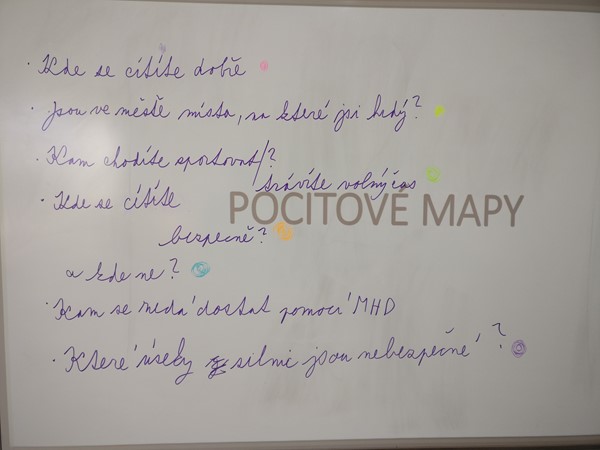 · Kde se cítíte dobře
· Jsou ve městě místa, na které jsi hrdý?
· Kam chodíte sportovat/?
trávíte volný čas
· Kde se cítíte
POCITOVÉ MAPY
bezpečně?
a kde ne?
· Kam se nedá dostat pomocí MHD
· Které úseky silnic jsou nebezpečné?